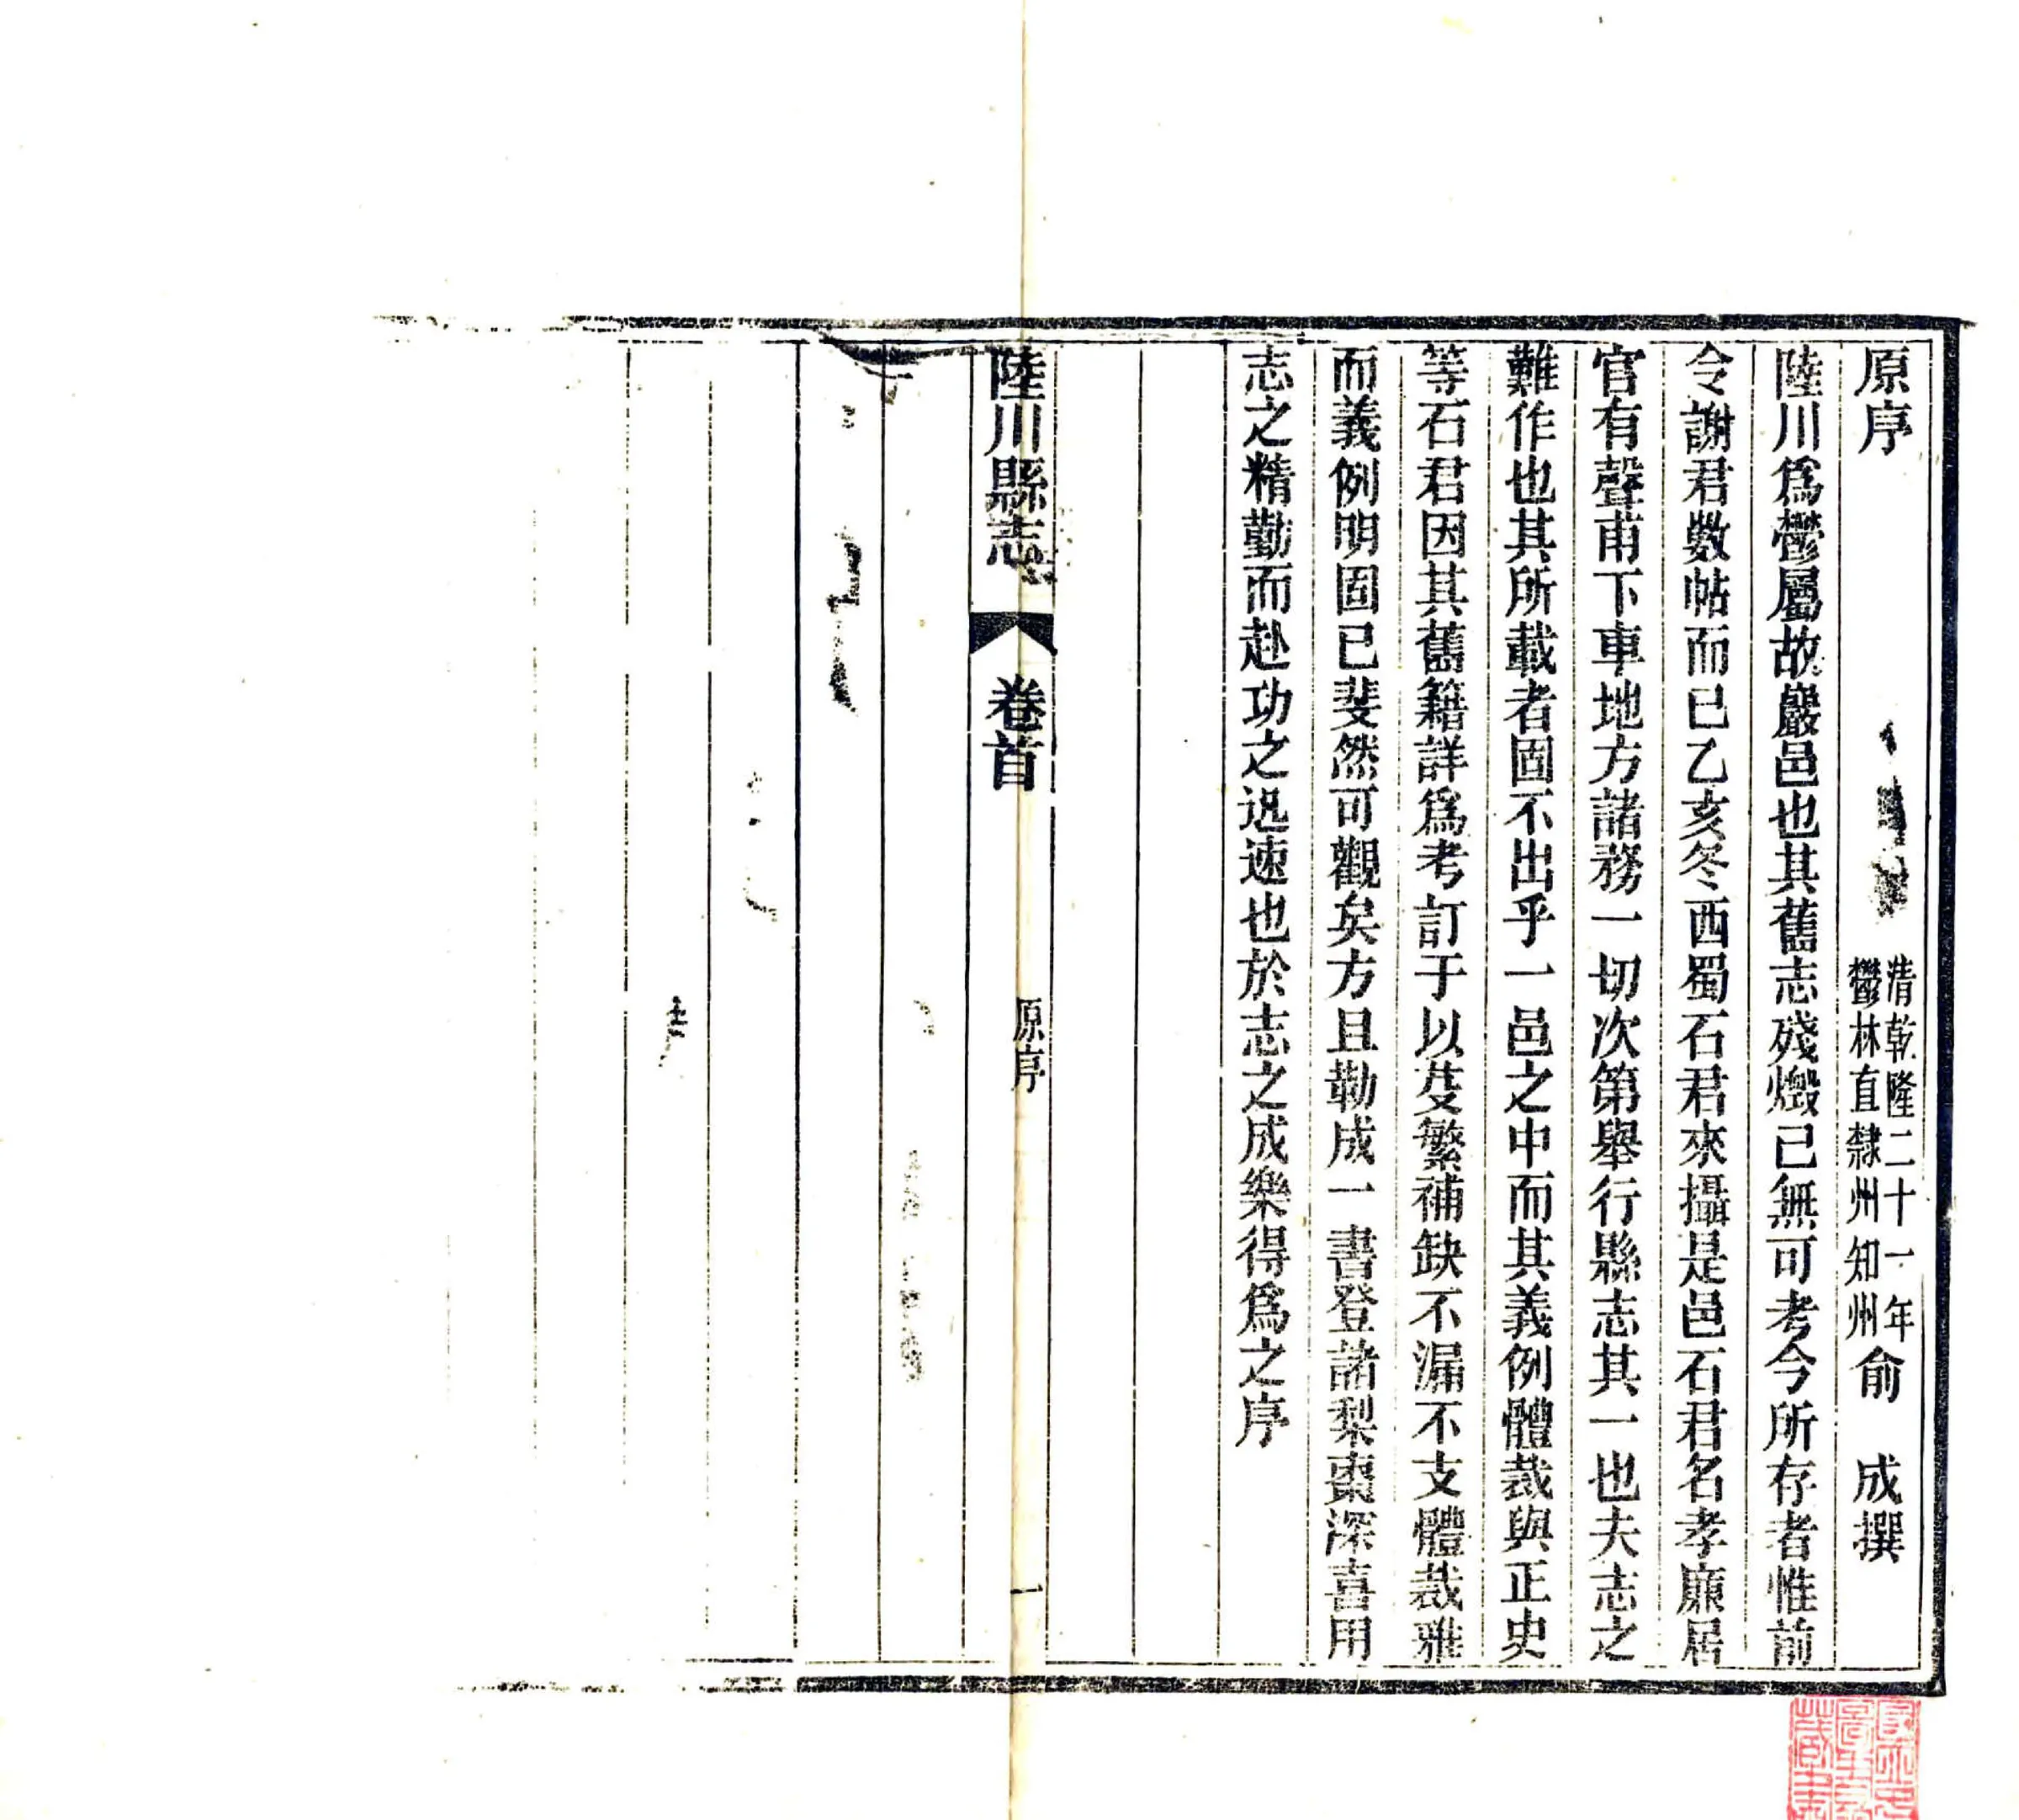 原序
清乾隆二十一年
鬱林直隸州知州俞 成撰
陸川爲鬱屬故巖邑也其舊志殘燬已無可考今所存者惟前
令謝君數帖而已乙亥冬西蜀石君來攝是邑石君名孝廉居
官有聲甫下車地方諸務一切次第舉行縣志其一也夫志之
難作也其所載者固不出乎一邑之中而其義例體裁與正史
等石君因其舊籍詳爲考訂于以芟繁補缺不漏不支體裁雅
而義例明固已斐然可觀矣方且勒成一書登諸梨棗深喜用
志之精勤而赴功之迅速也於志之成樂得爲之序
陸川縣志
卷首
原序
一